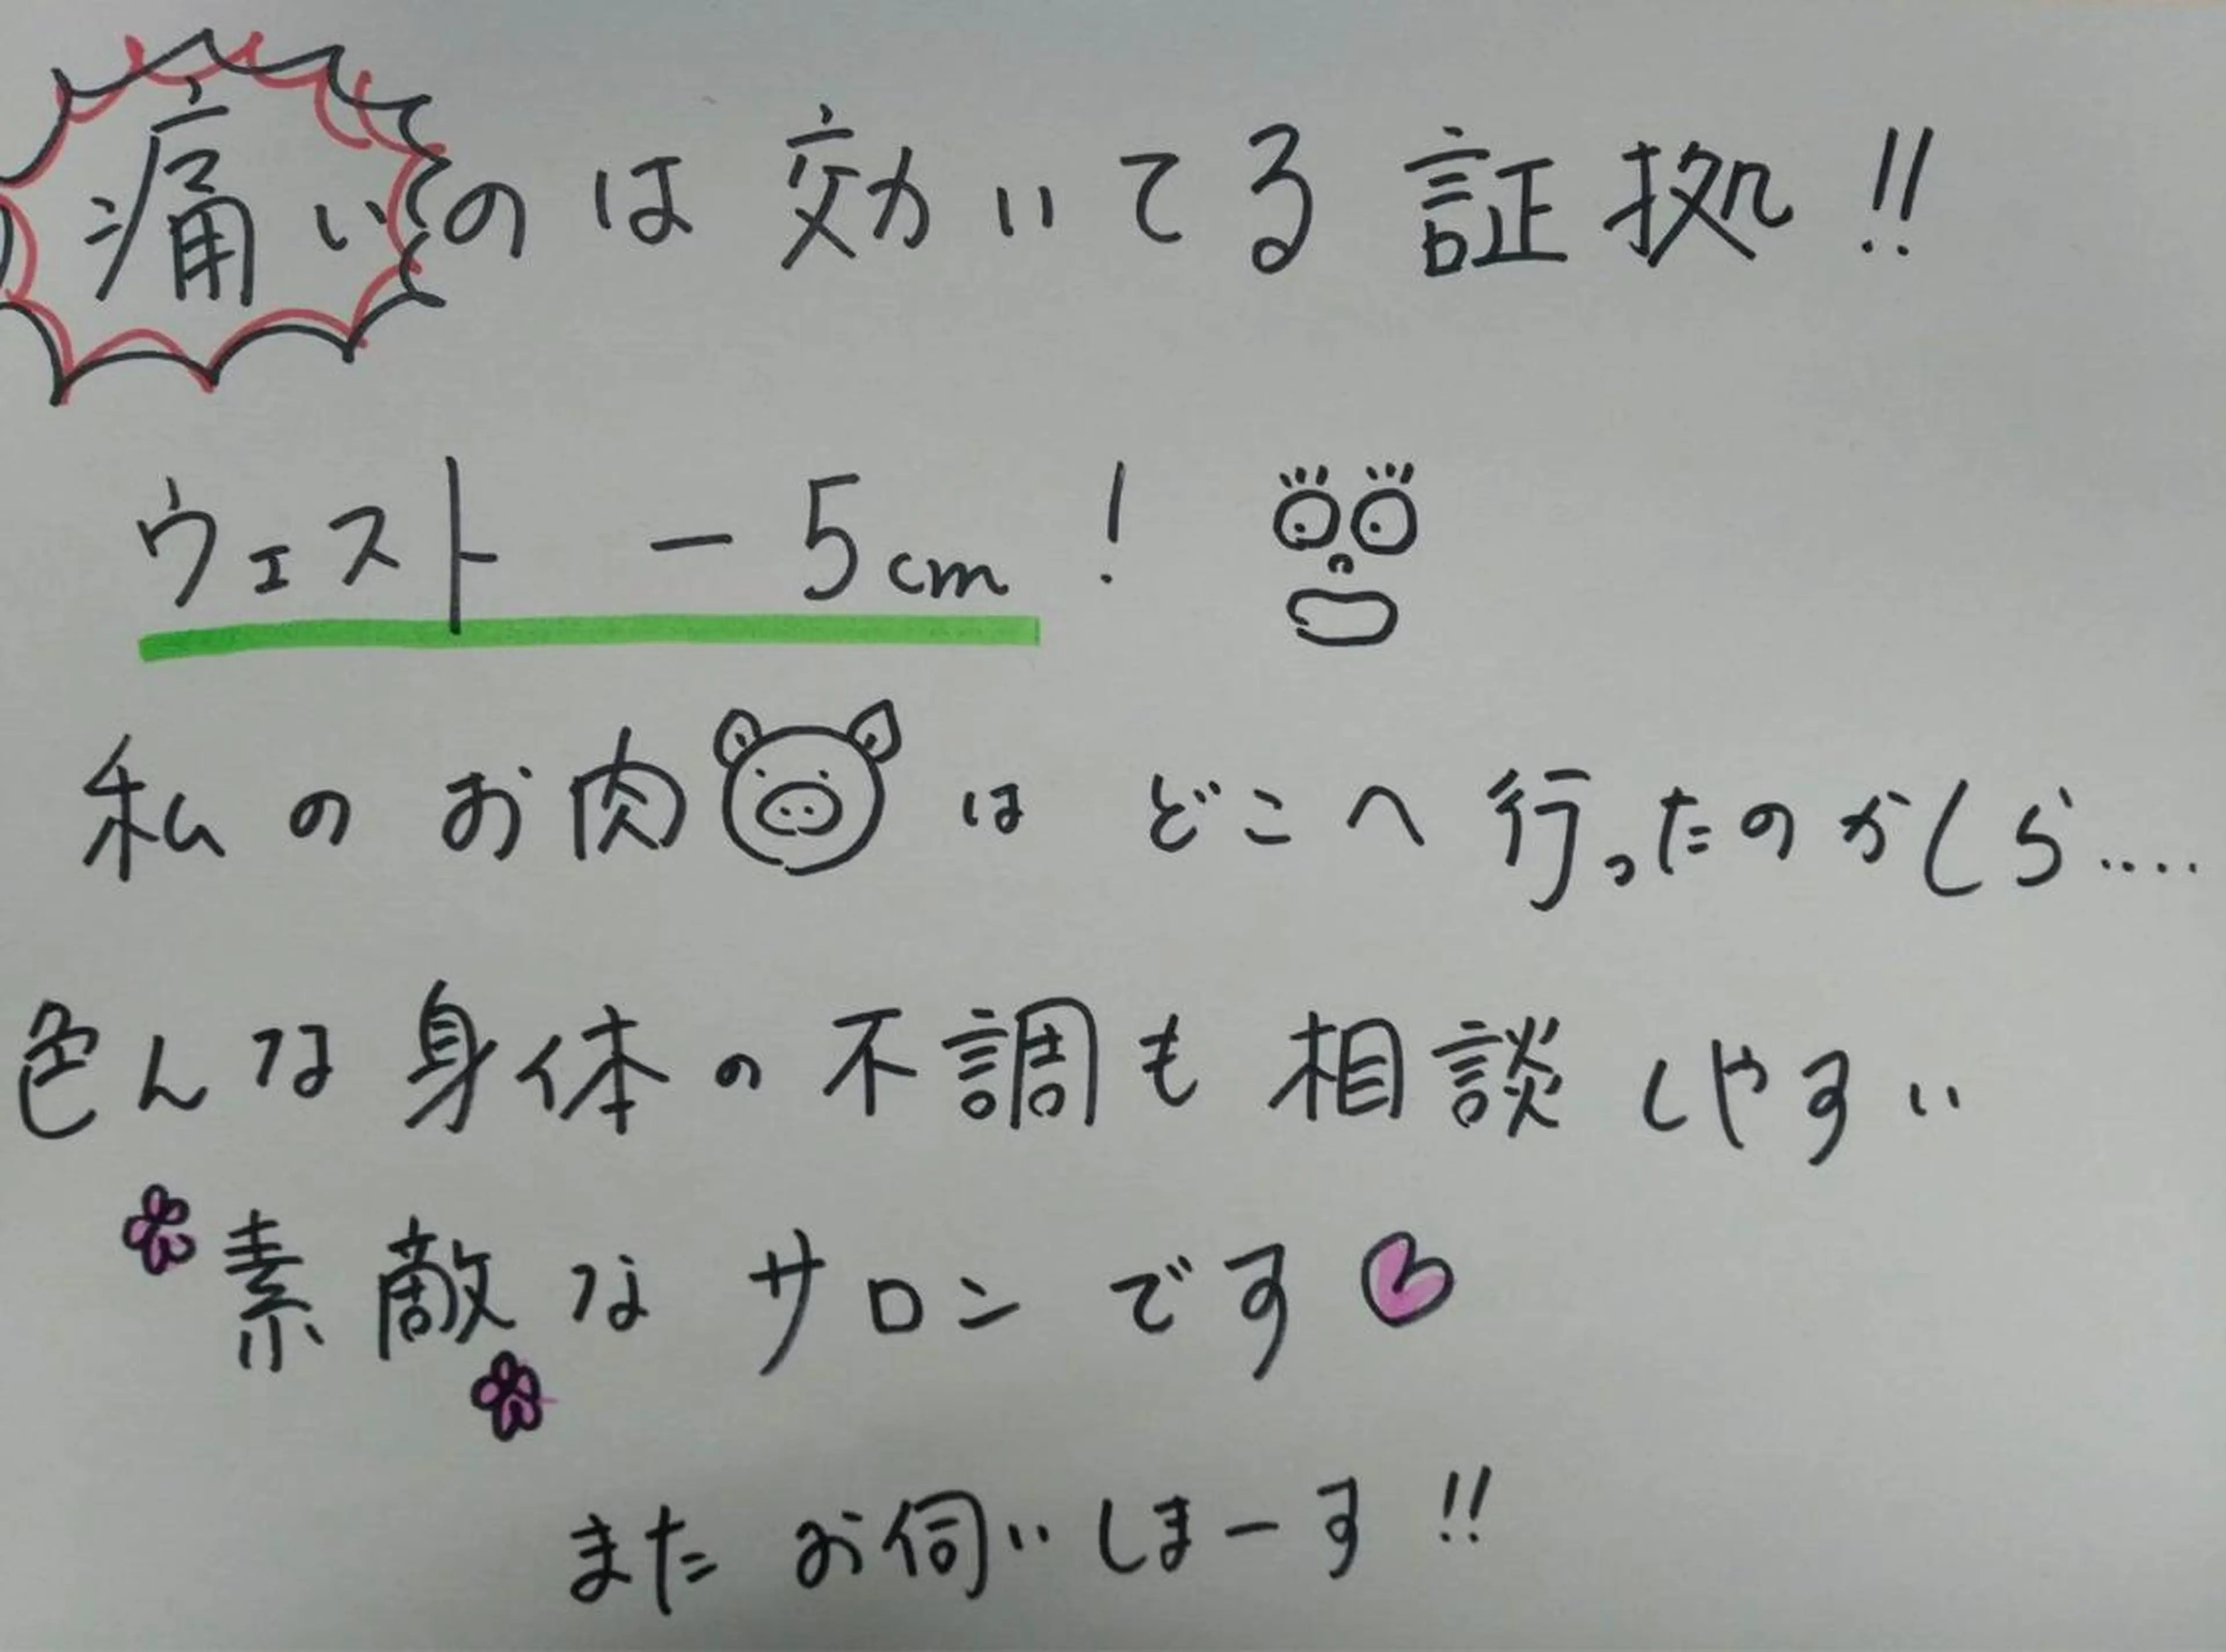 痛いのは効いてる証拠!!
ウェスト -5cm!
私のお肉はどこへ行ったのかしら....
色んな身体の不調も相談しやすい
素敵なサロンです
またお伺いしまーす!!